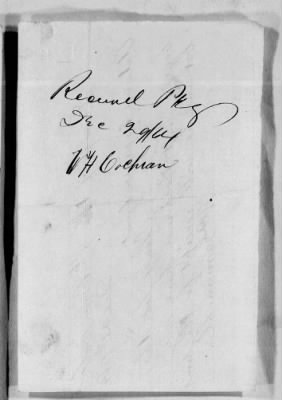 Received Pkg
Dec 29/64
W H Cochran